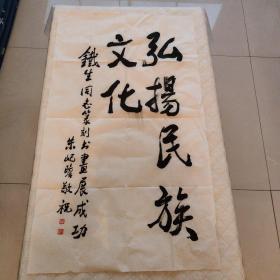 弘揚民族
文化
鐵生同志篆刻书畫展成功
朱屺瞻敬祝